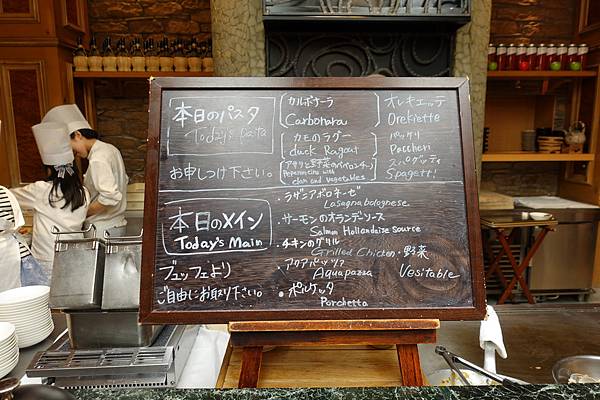 本日のパスタ
Today's pasta
お申しつけ下さい。
カルボナーラ
Carbonara
カモのラグー
duck Ragout
アサリと野菜のペペロンチーノ
Peperoncino with
clam and vegetables
オレキエッテ
Orekiette
パッケリ
Paccheri
スパゲッティ
Spagetti
本日のメイン
Today's Main
ブュッフェより
ご自由にお取り下さい。
・ラザニアボロネーゼ
Lasagna bolognese
・サーモンのオランデソース
Salmon Hollandaize source
・チキンのグリル
Grilled Chicken・野菜
Vesitable
・アクアパッツァ
Aquapazza
・ポルケッタ
Porchetta